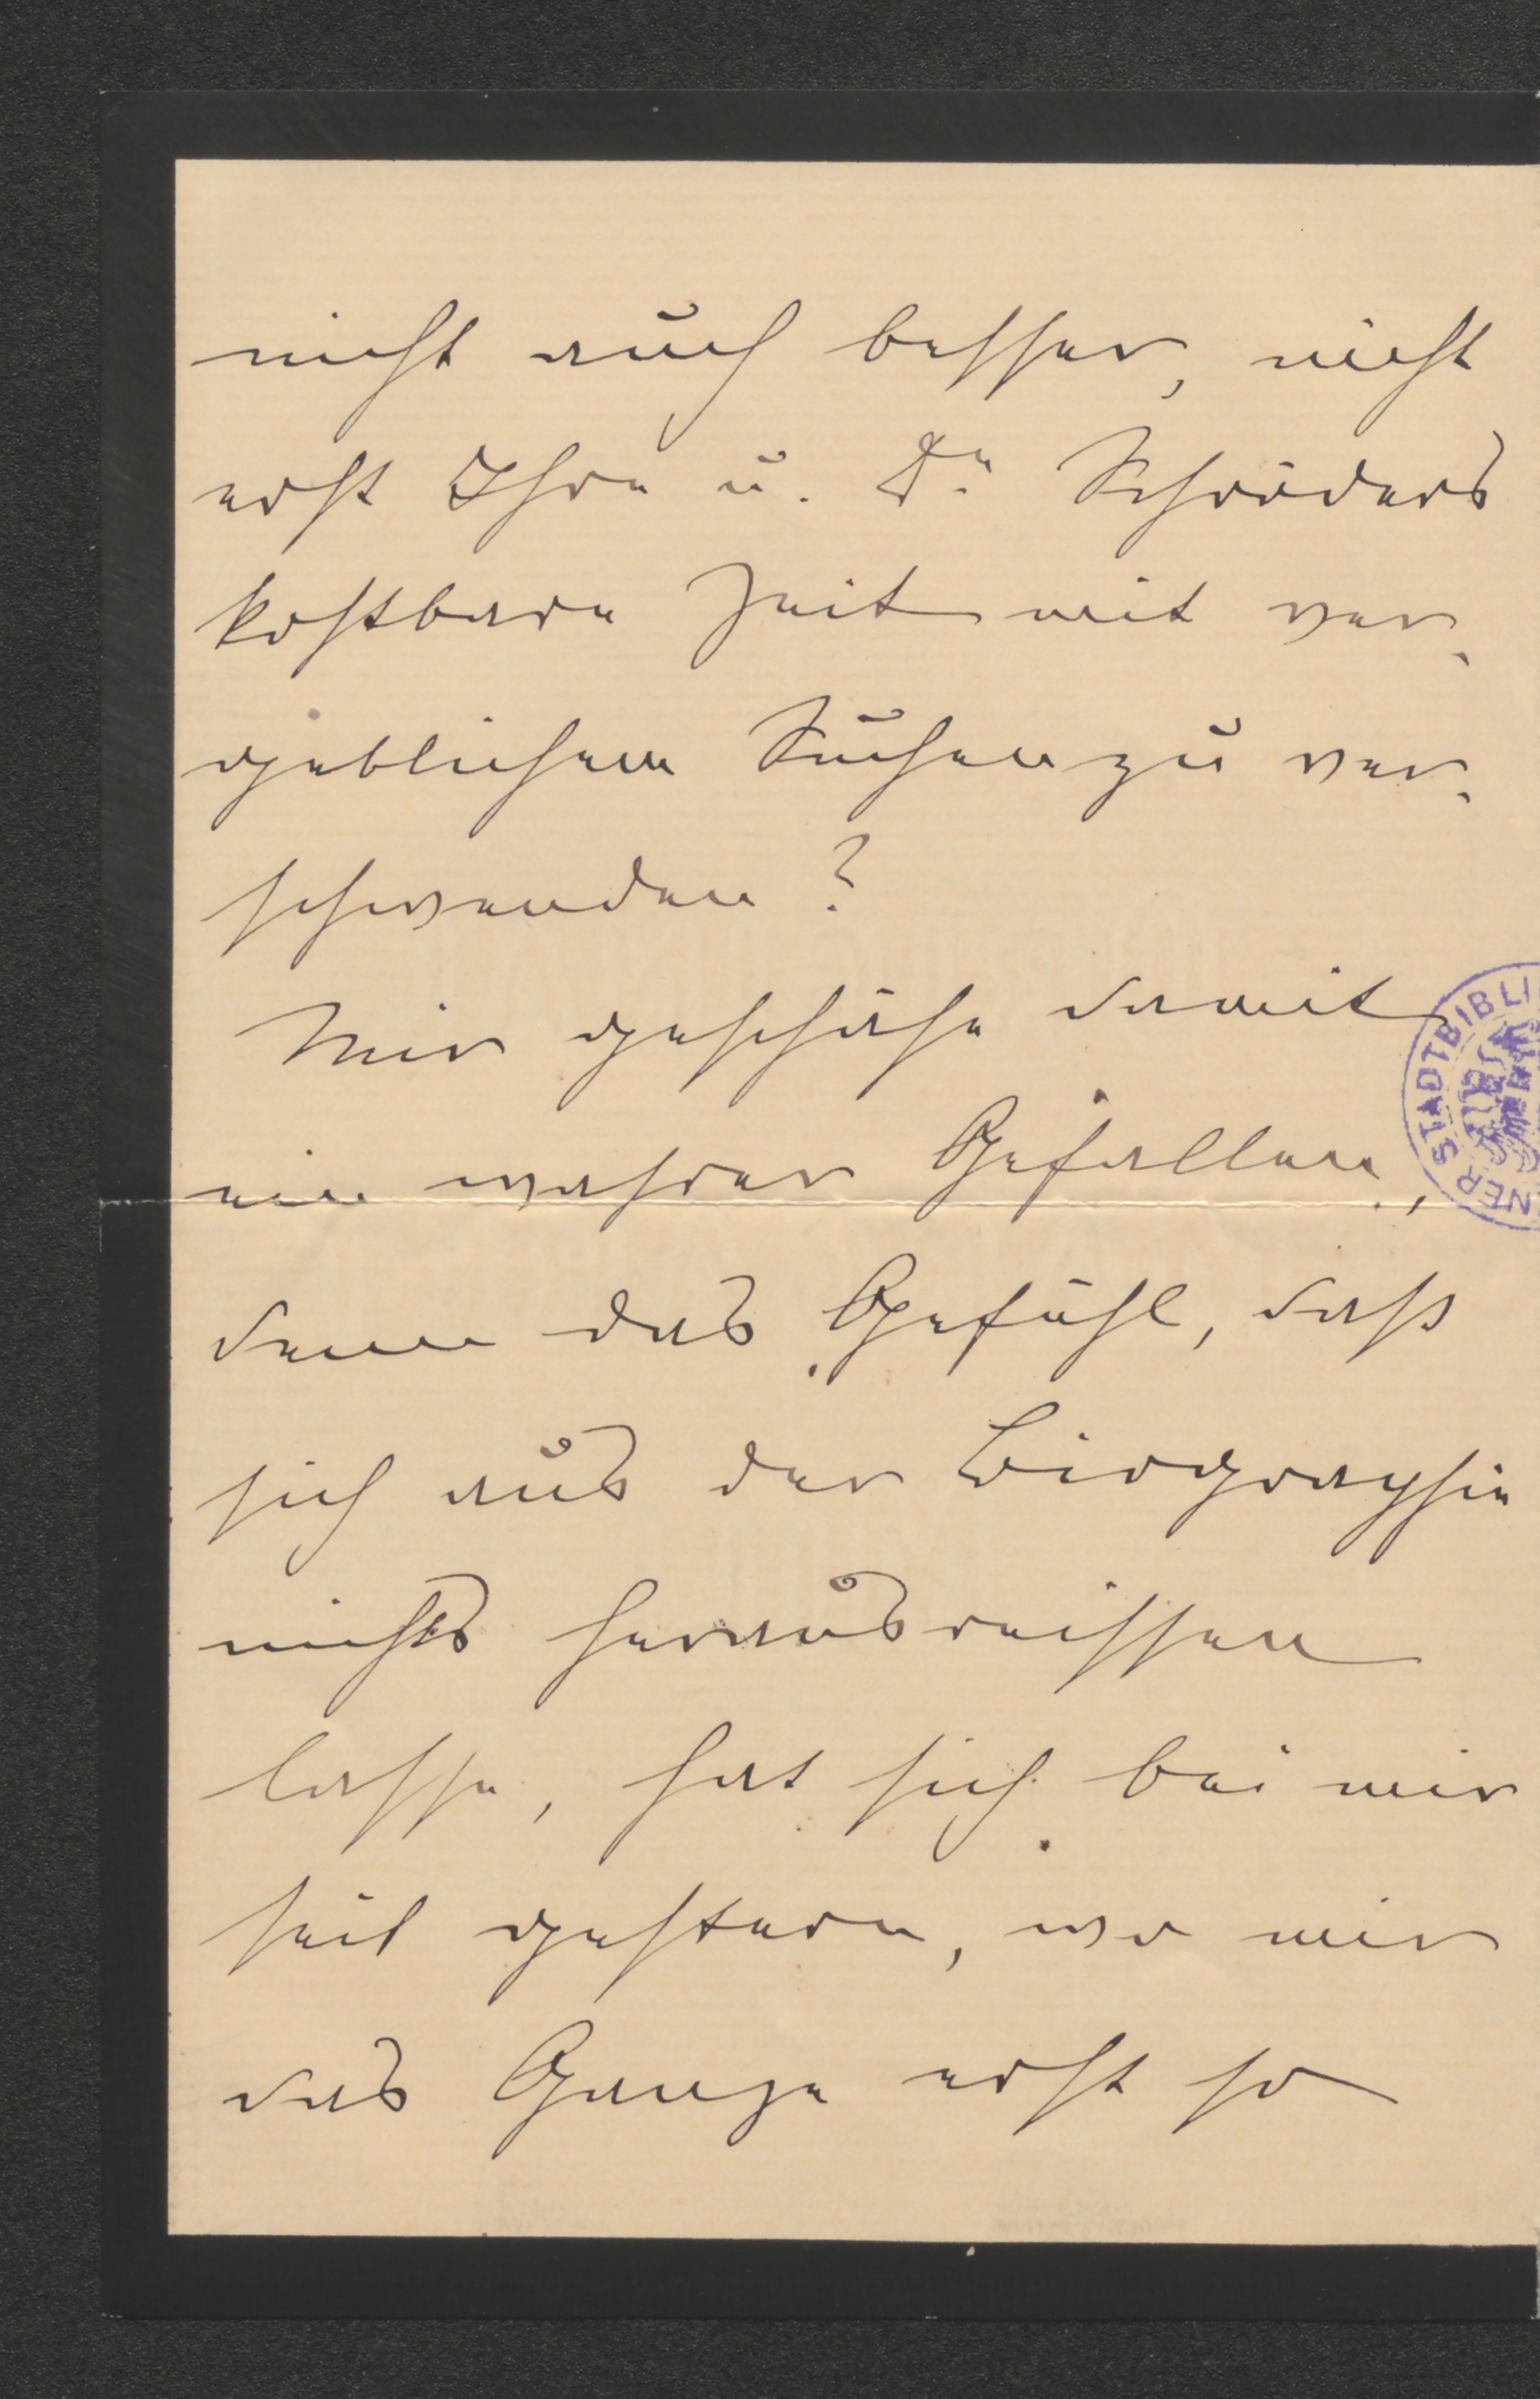 nicht auch besser, nicht
erst Ihre u. Dr Schröders
kostbare Zeit mit ver-
geblichem Suchen zu ver-
schwenden?
Mir geschähe damit
ein wahrer Gefallen,
denn das Gefühl, daß
sich aus der Biographie
nichts herausreissen
lasse, hat sich bei mir
seit gestern, wo mir
das Ganze erst so
NER STADTBIBLI